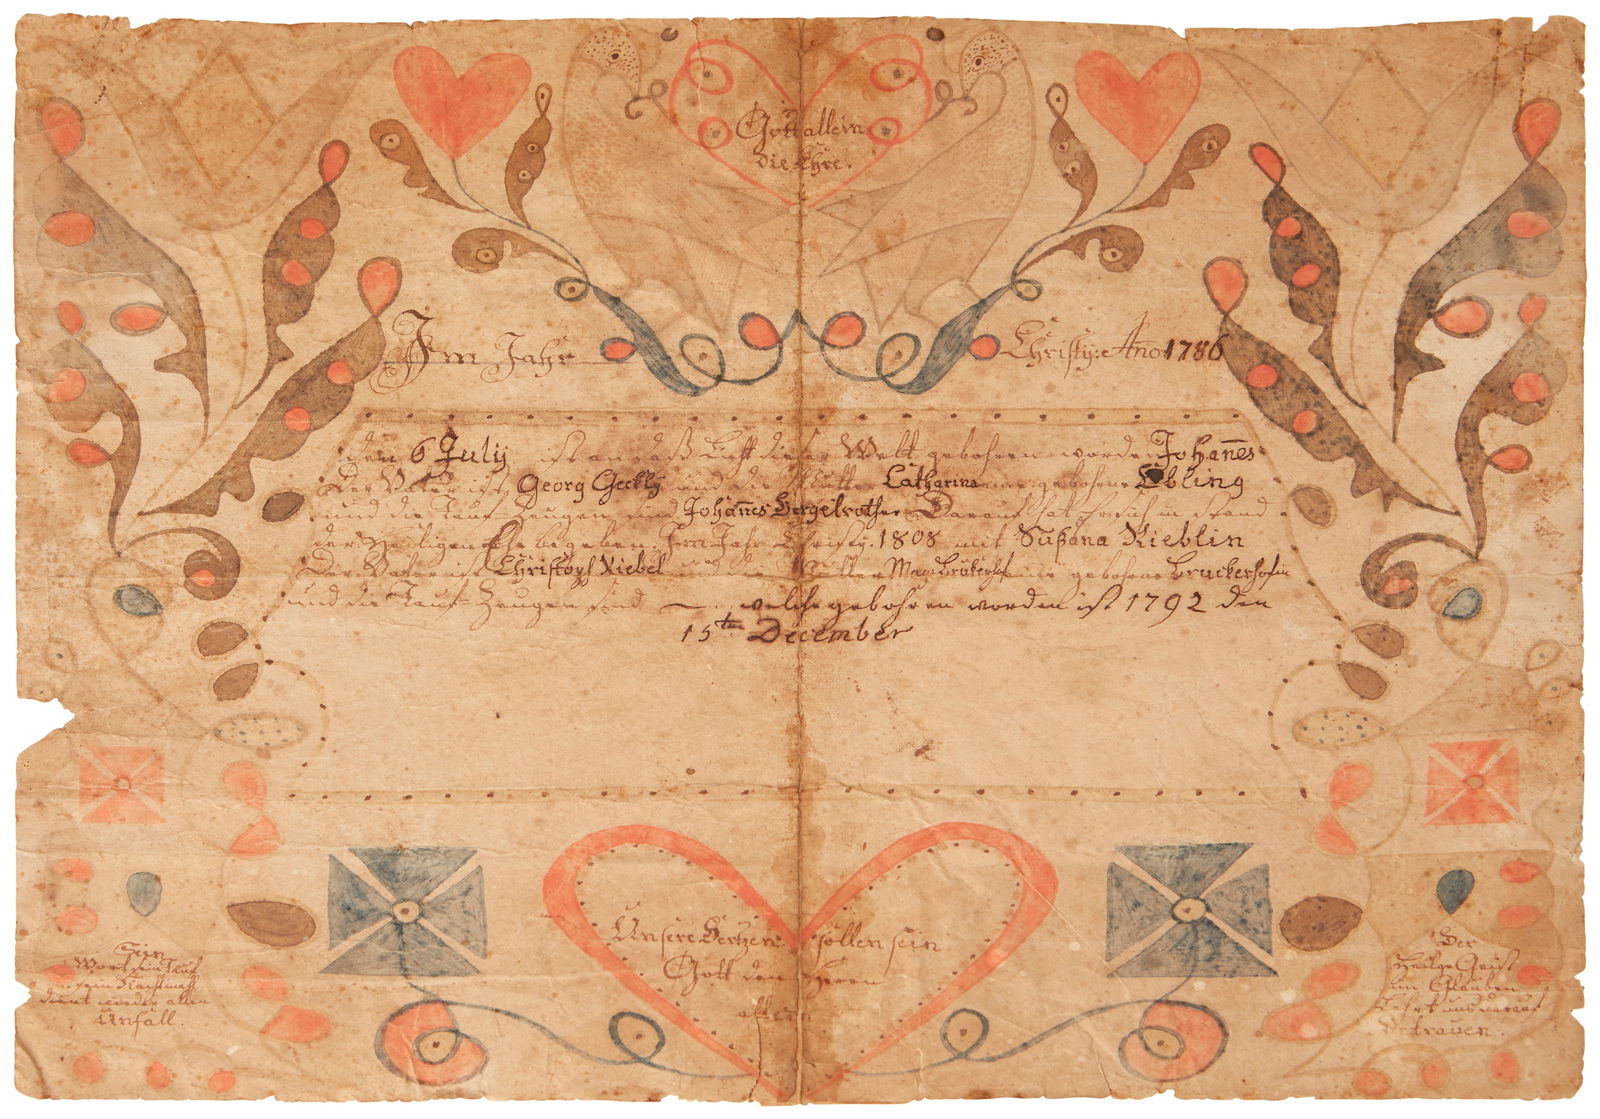 Gott allein
die Ehre.
Im Jahr Christy: Ano 1786
den 6 July ist an daß Licht dieser Welt gebohren worden Johan̄es
Der Vater ist Georg Geckly und die Mutter Catharina eine gebohrne Ebling
und die Tauf Zeugen sind Johan̄es Bergelrother Darauf hat er sich in Stand
der Heiligen Ehe begeben Im Jahr Christy. 1808 mit Sußana Rieblin
Der Vater ist Christoph Riebel und die Mutter eine gebohrne Bruckerhofin
und die Tauf-Zeugen sind — welche gebohren worden ist 1792 den
15ten December
Unsere Hertzen sollen sein
Gott dem Herrn
allein
Sein
Wort sein Tauf
sein Nachtmahl
dient wieder allen
Unfall.
Der
Heilge Geist
im Glauben
Lehrt uns darauf
Vertrauen.